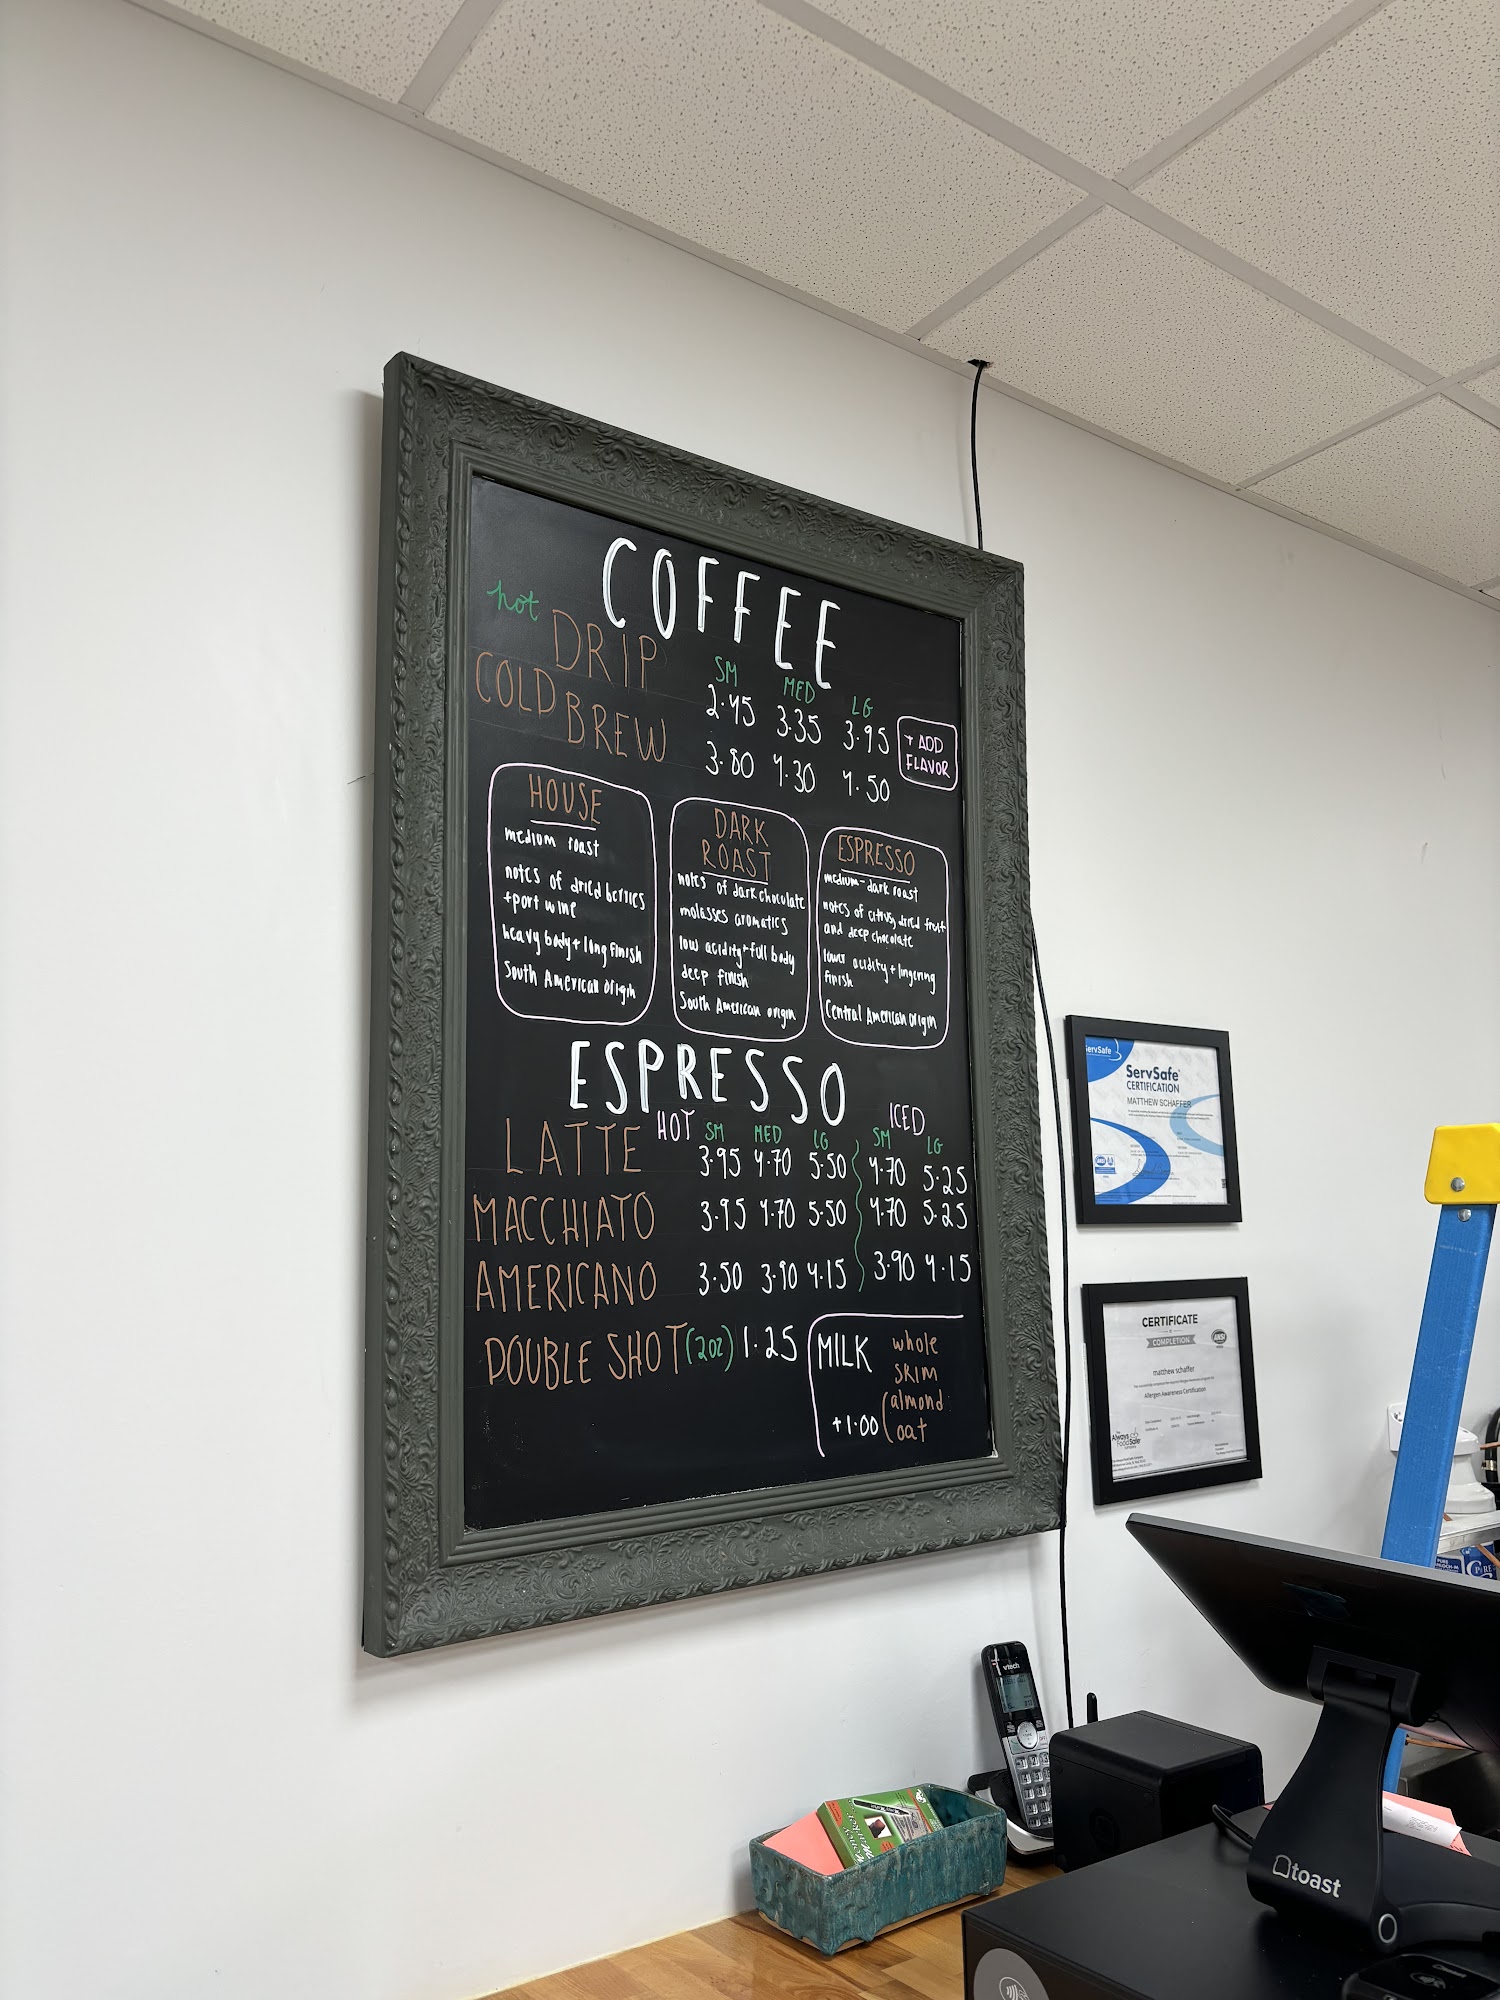 COFFEE
hot DRIP
SM MED LG
2.45 3.35 3.95
COLD BREW 3.80 4.30 4.50
+ ADD
FLAVOR
HOUSE
medium roast
notes of dried berries
+port wine
heavy body + long finish
South American origin
DARK
ROAST
notes of dark chocolate
molasses aromatics
low acidity + full body
deep finish
South American origin
ESPRESSO
medium-dark roast
notes of citrus, dried fruit
and deep chocolate
lower acidity + lingering
finish
Central American origin
ESPRESSO
HOT SM MED LG ICED SM LG
LATTE 3.95 4.70 5.50 4.70 5.25
MACCHIATO 3.95 4.70 5.50 4.70 5.25
AMERICANO 3.50 3.90 4.15 3.90 4.15
DOUBLE SHOT (2oz) 1.25
MILK whole
skim
almond
+1.00 oat
ServSafe
ServSafe
CERTIFICATION
MATTHEW SCHAFFER
CERTIFICATE
COMPLETION
ANSI
matthew schaffer
Allergen Awareness Certification
Always
Food Safe
vtech
toast